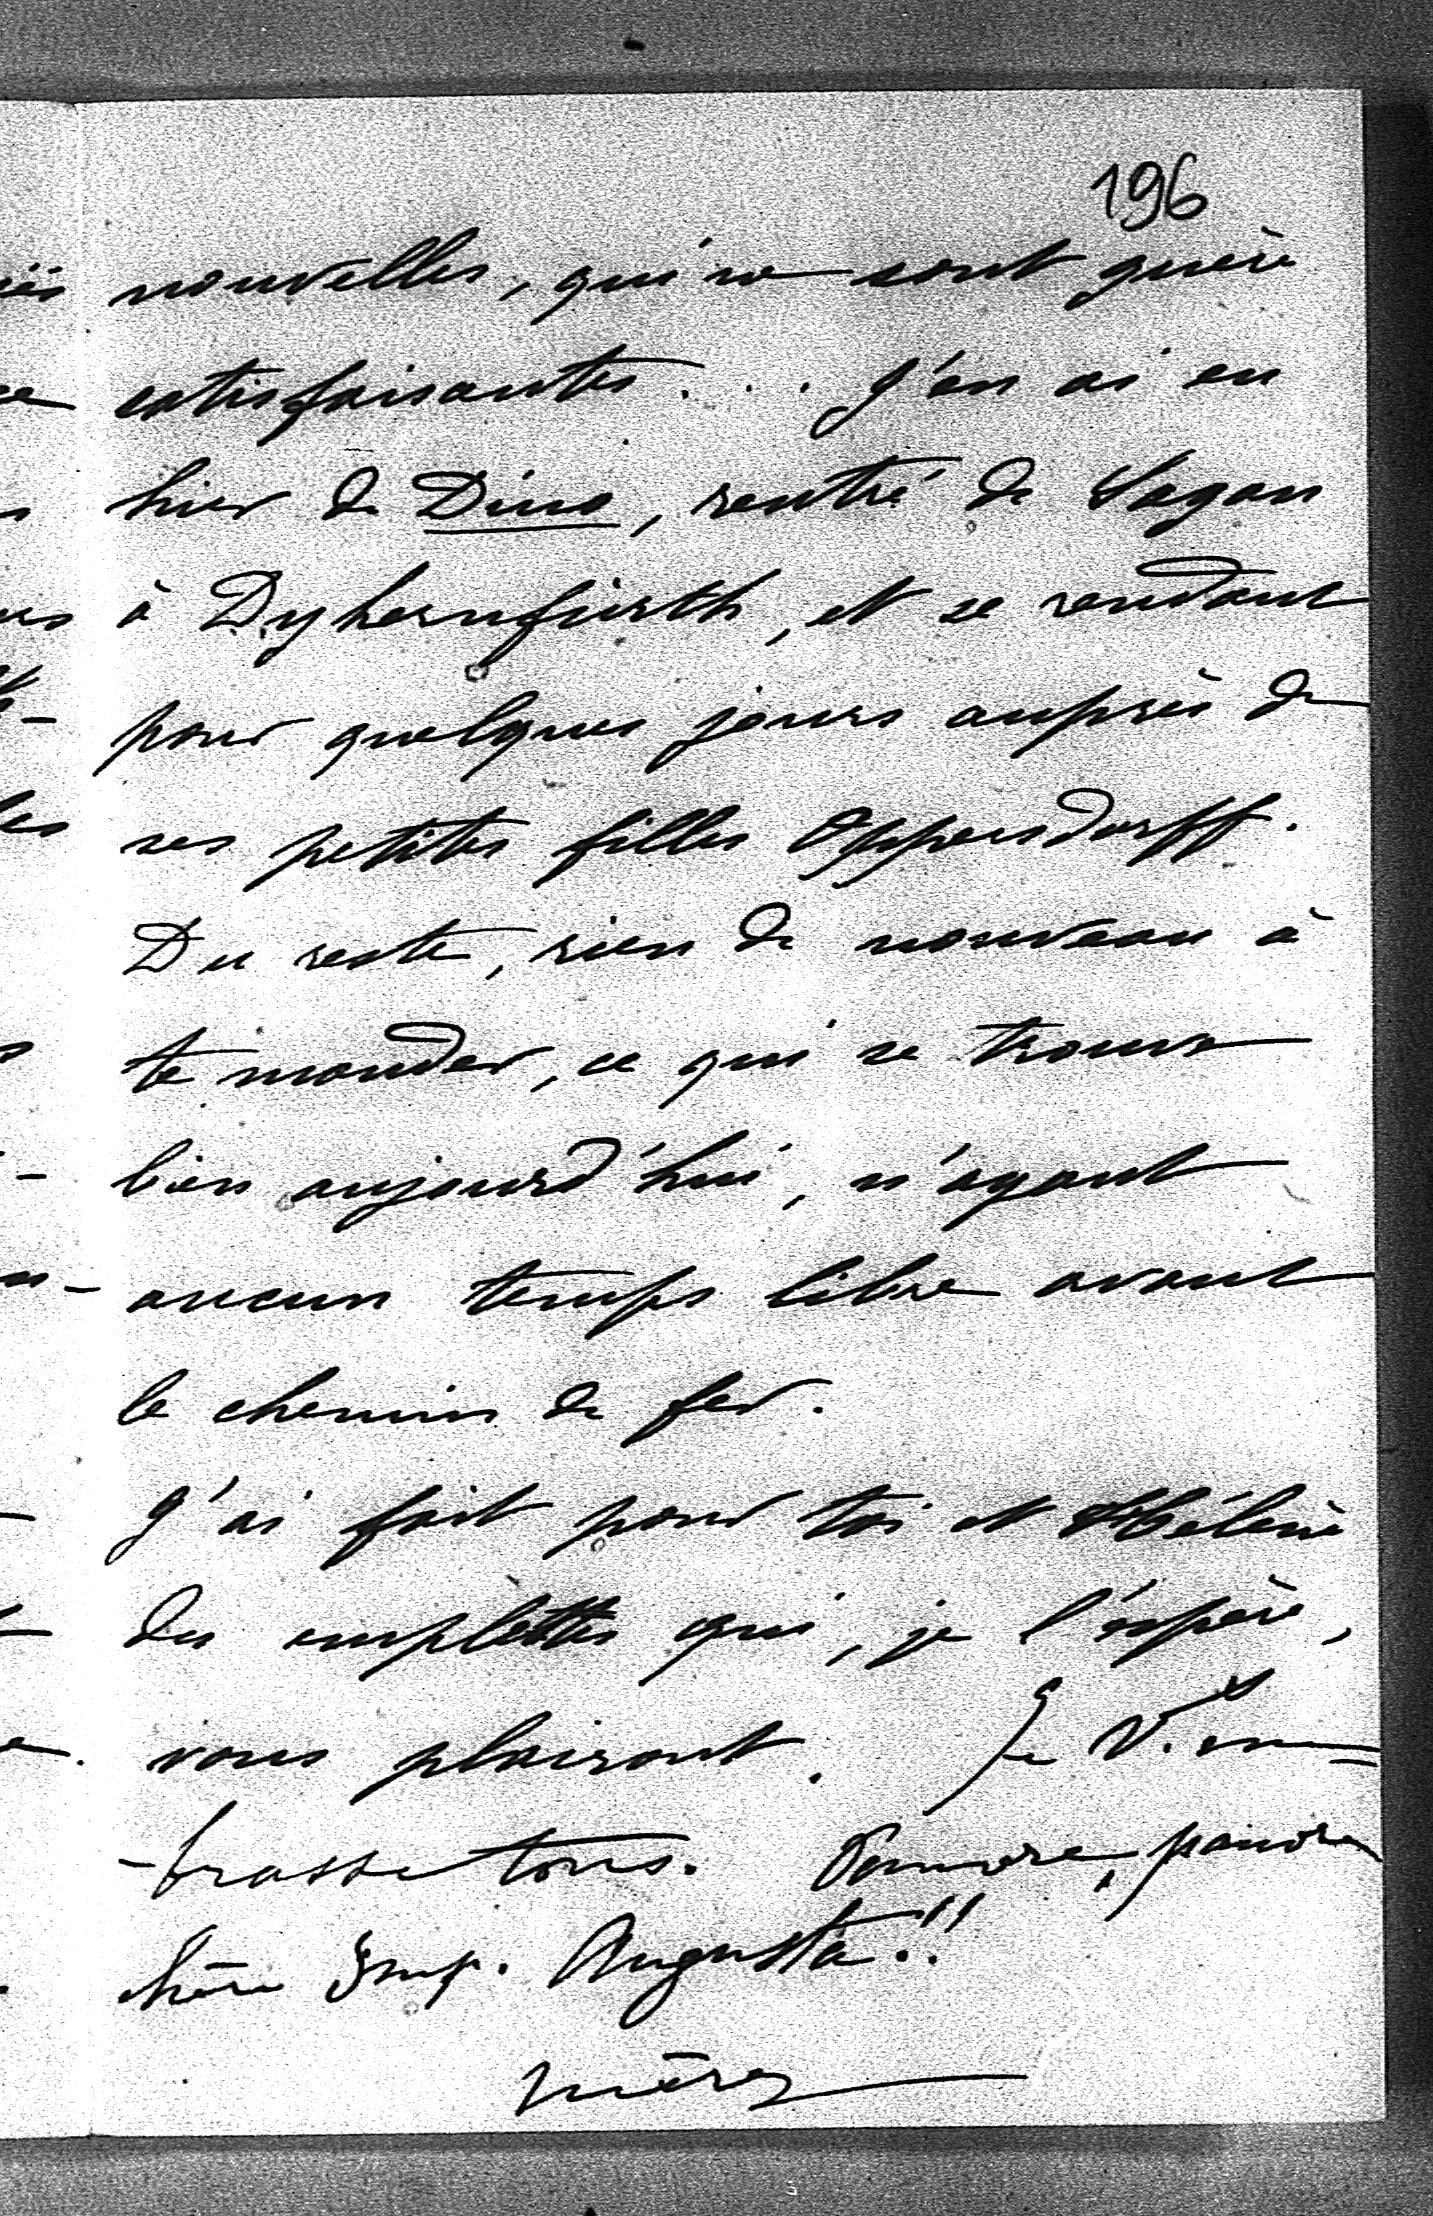 196
nouvelles, qui ne sont guère
satisfaisantes... J'en ai eu
hier de Dino, rentré de Sagan
à Dyhernfurth, et se rendant
pour quelques jours auprès de
ses petites filles Oppersdorff.
Du reste, rien de nouveau à
te mander, ce qui se trouve
bien aujourd'hui, n'ayant
aucun temps libre avant
le chemin de fer.
J'ai fait pour toi et Hélène
des emplettes qui, je l'espère,
vous plairont. Je V. em=
-brasse tous. Pauvre, pauvre
chère Imp. Augusta!!